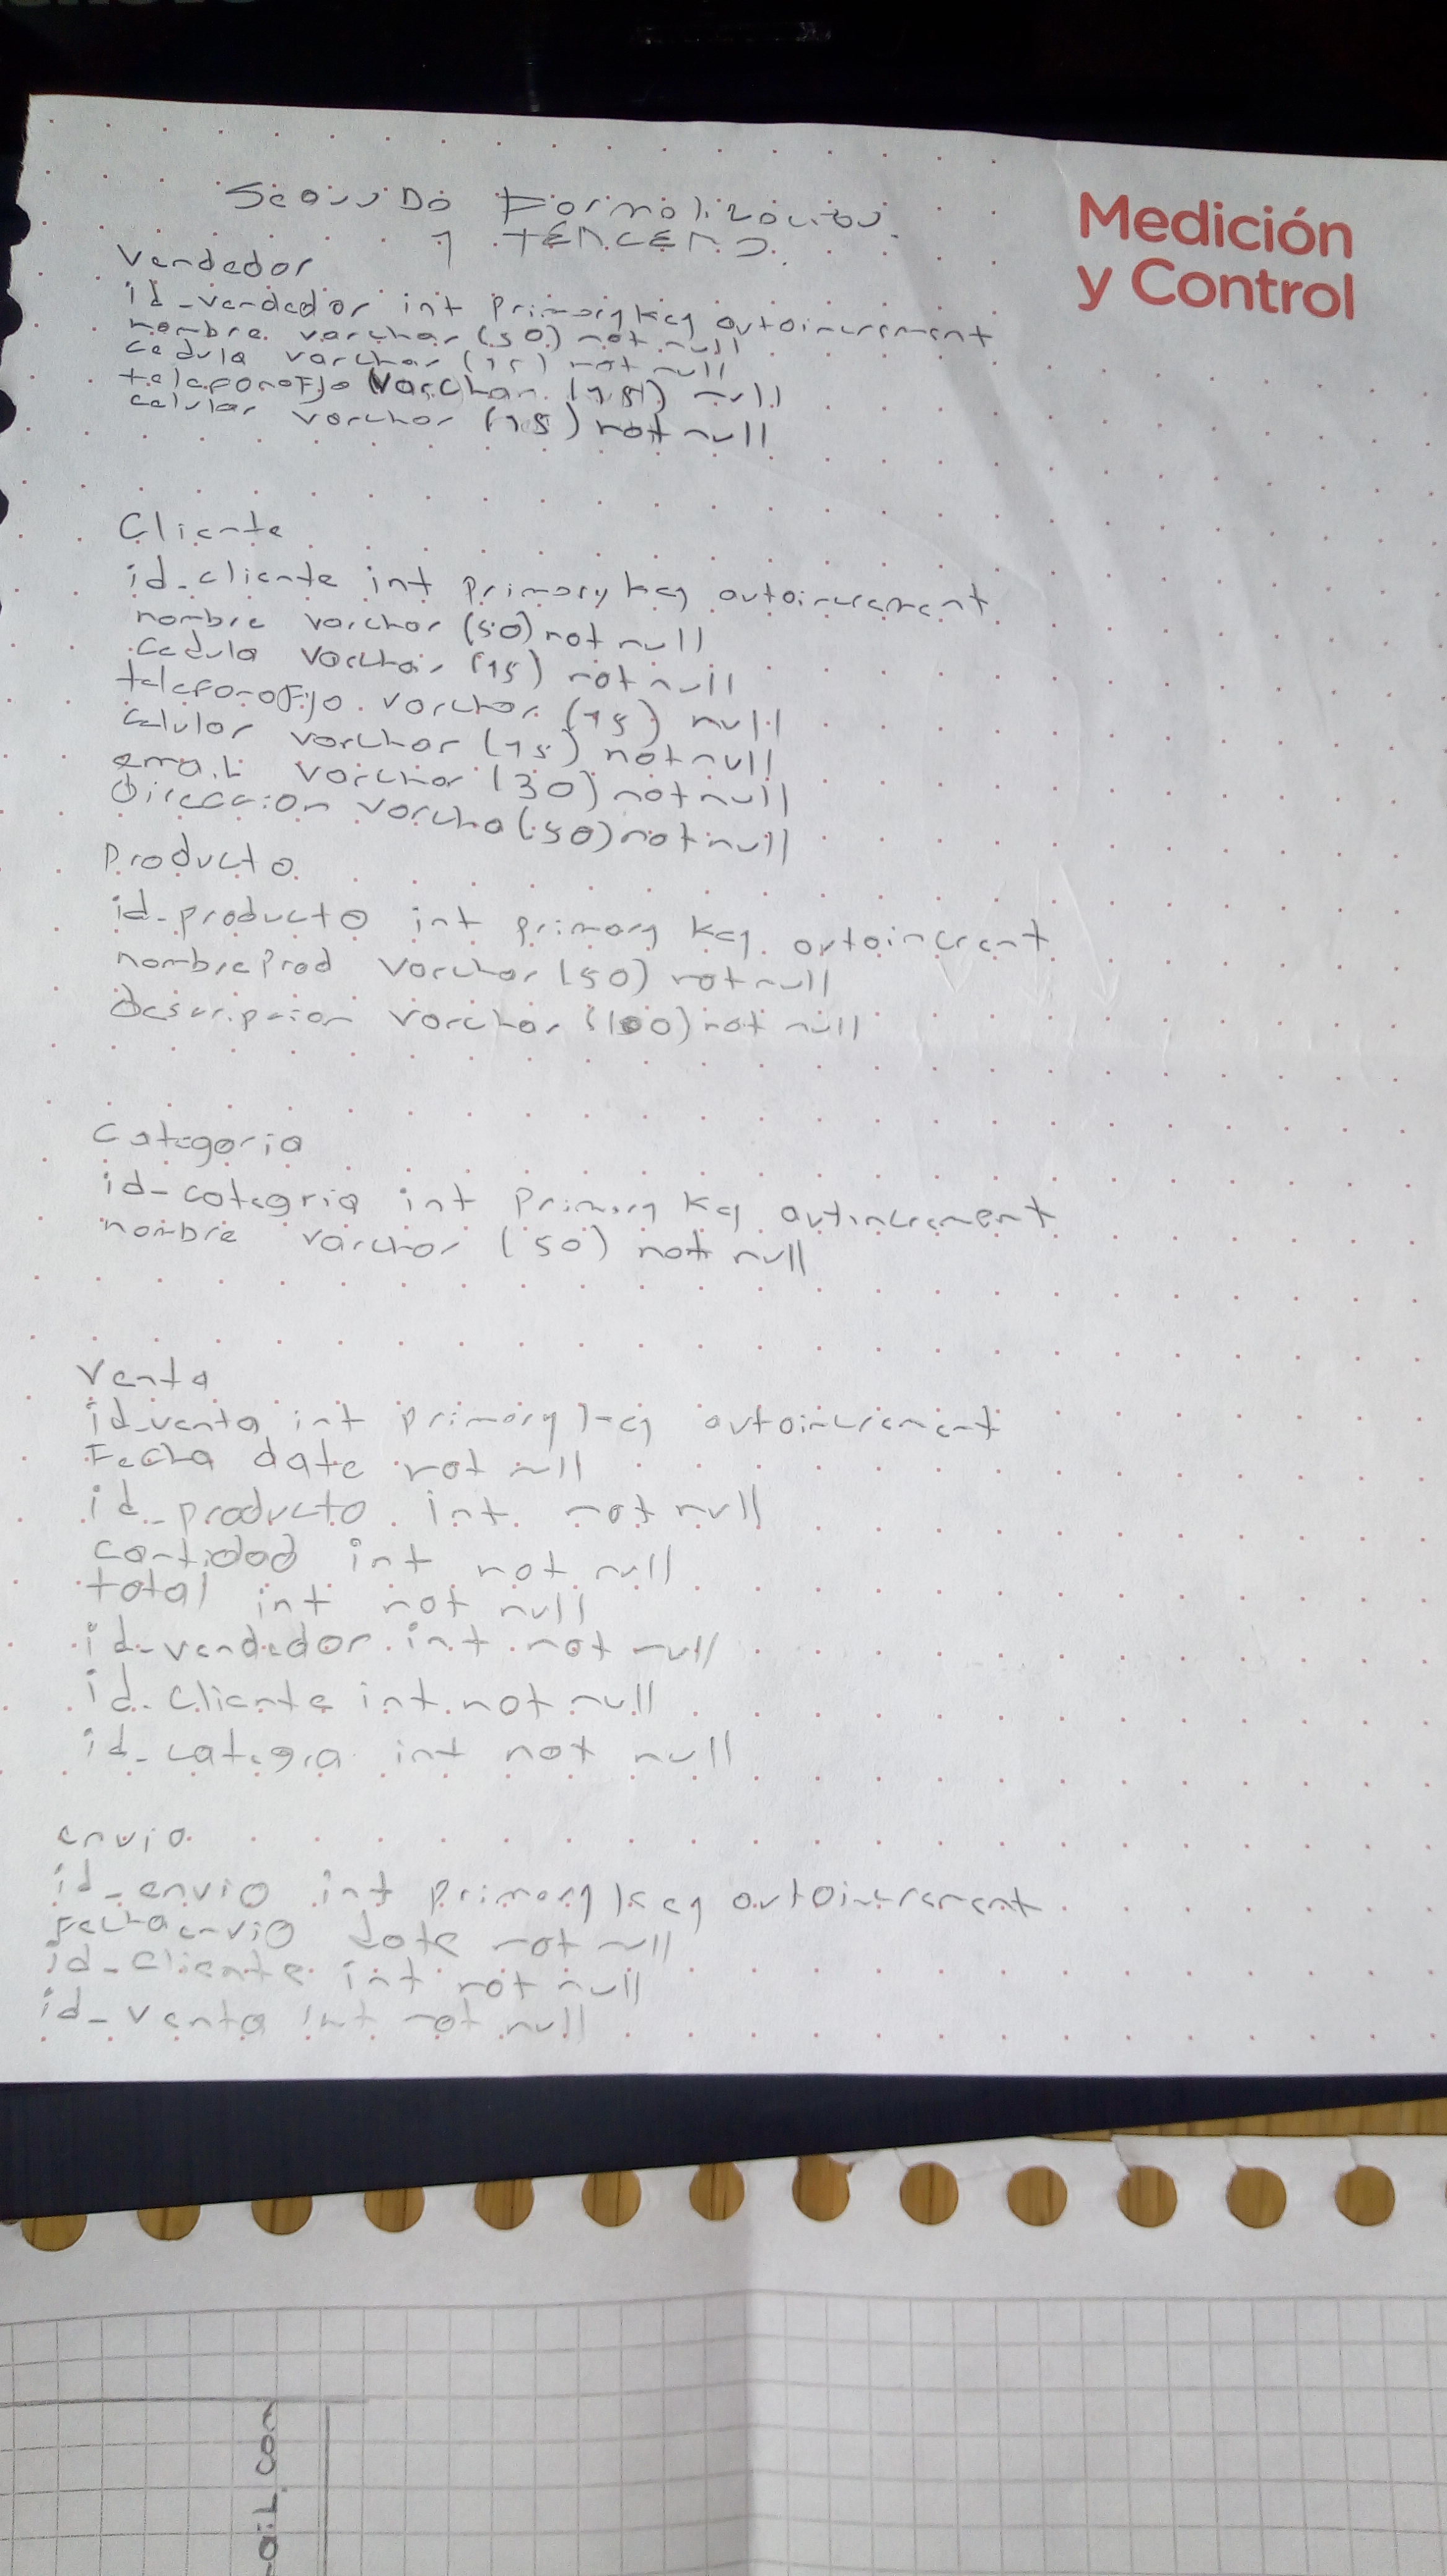 Segundo Formalización
y TERCERO.
Medición
y Control
Vendedor
id_vendedor int primary key autoincrement
nombre varchar (50) not null
cedula varchar (15) not null
telefonoFijo varchar (15) null
celular varchar (15) not null
Cliente
id_cliente int primary key autoincrement
nombre varchar (50) not null
cedula varchar (15) not null
telefonoFijo varchar (15) null
celular varchar (15) not null
email varchar (30) not null
Direccion varcha (50) not null
Producto
id_producto int primary key autoincrent
nombreProd varchar (50) not null
Descripcion varchar (100) not null
Categoria
id_categria int primary key autincrement
nombre varchar (50) not null
Venta
id_venta int primary key autoincrement
Fecha date not null
id_producto int not null
cantidad int not null
total int not null
id_vendedor int not null
id_cliente int not null
id_categra int not null
envio
id_envio int primary key autoincrement
Fechaenvio date not null
id_cliente int not null
id_venta int not null
ail.com